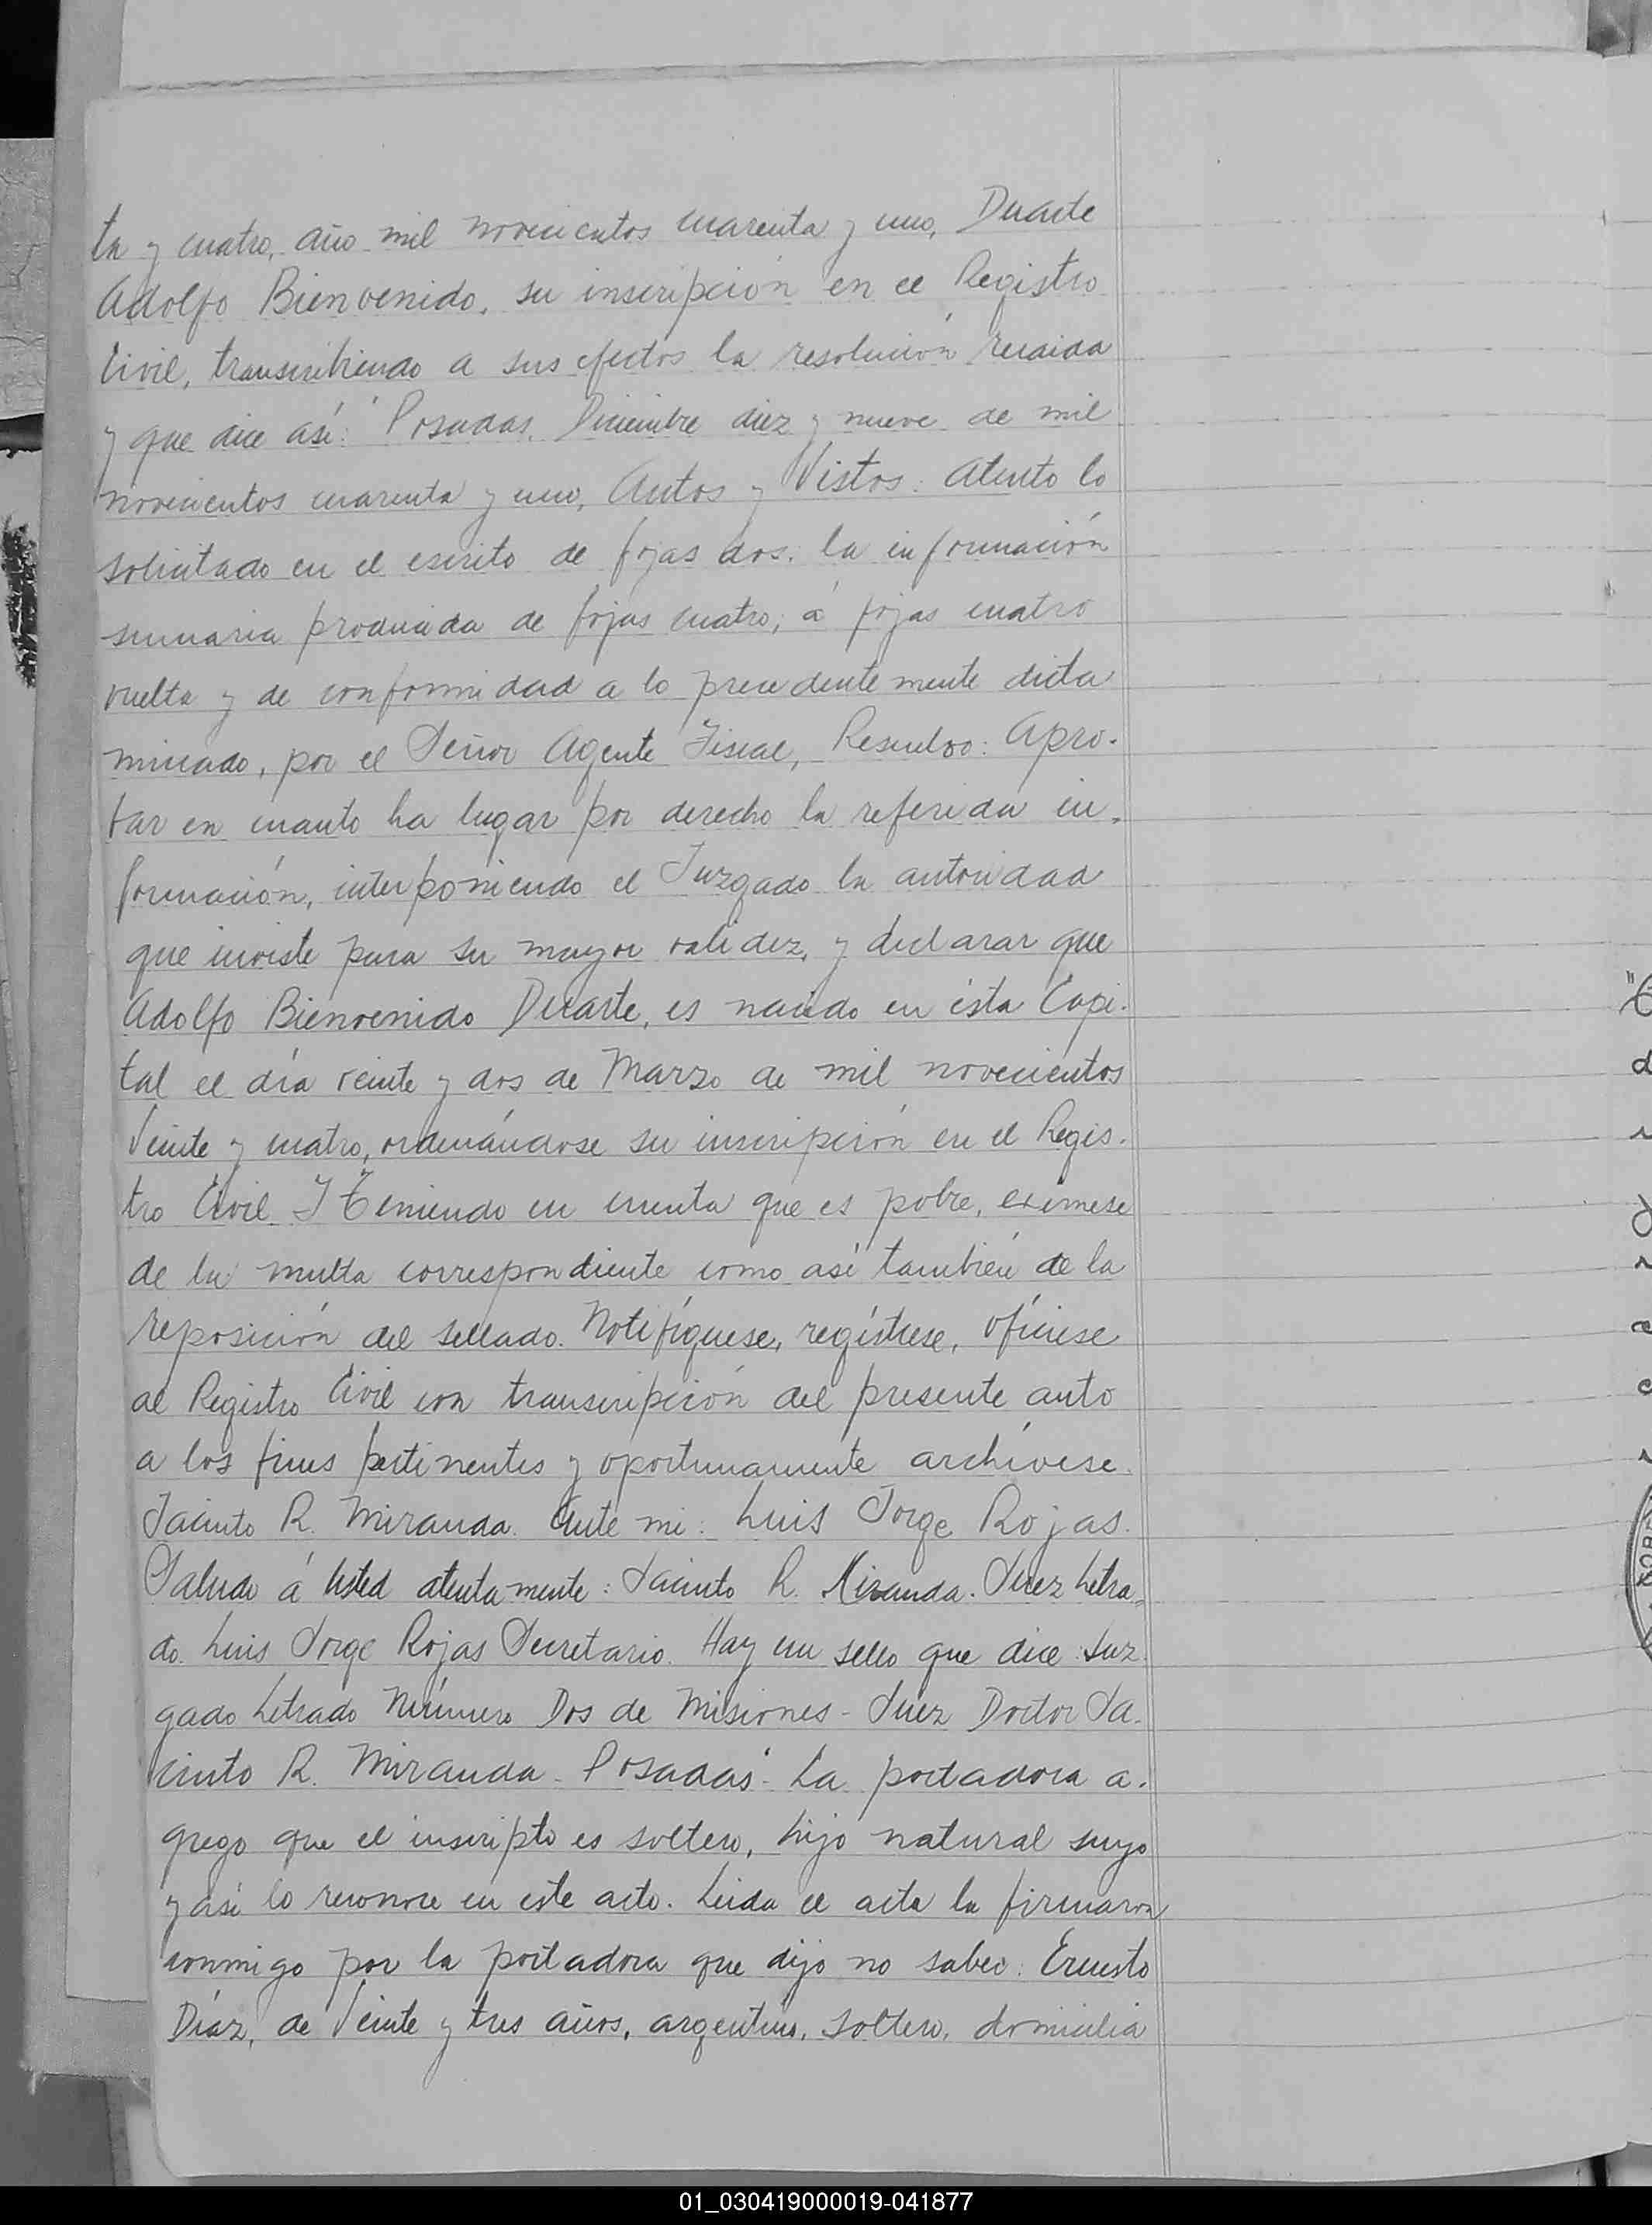 ta y cuatro, año mil novecientos cuarenta y uno, Duarte
Adolfo Bienvenido, su inscripción en el Registro
Civil, transcribiendo a sus efectos la resolución recaida
y que dice así: "Posadas, Diciembre diez y nueve de mil
novecientos cuarenta y uno, Autos y Vistos: Atento lo
solicitado en el escrito de fojas dos, la información
sumaria producida de fojas cuatro, á fojas cuatro
vuelta y de conformidad a lo precedentemente dicta
minado, por el Señor Agente Fiscal, Resuelvo: Apro-
bar en cuanto ha lugar por derecho la referida in-
formación, interponiendo el Juzgado la autoridad
que inviste para su mayor validez, y declarar que
Adolfo Bienvenido Duarte, es nacido en ésta Capi-
tal el día veinte y dos de Marzo de mil novecientos
Veinte y cuatro, ordenándose su inscripción en el Regis-
tro Civil. Y Teniendo en cuenta que es pobre, exímese
de la multa correspondiente como así también de la
reposición del sellado. Notifíquese, regístrese, ofíciese
al Registro Civil con transcripción del presente auto
a los fines pertinentes y oportunamente archívese.
Jacinto R. Miranda. Ante mi: Luis Jorge Rojas.
Saludo á Usted atentamente: Jacinto R. Miranda. Juez Letra-
do. Luis Jorge Rojas Secretario. Hay un sello que dice: Juz
gado Letrado Número Dos de Misiones - Juez Doctor Ja-
cinto R. Miranda - Posadas". La portadora a-
grego que el inscripto es soltero, hijo natural suyo
y así lo reconoce en este acto. Leida el acta la firmaron
conmigo por la portadora que dijo no saber: Ernesto
Díaz, de Veinte y tres años, argentino, soltero, domicilia
01_030419000019-041877